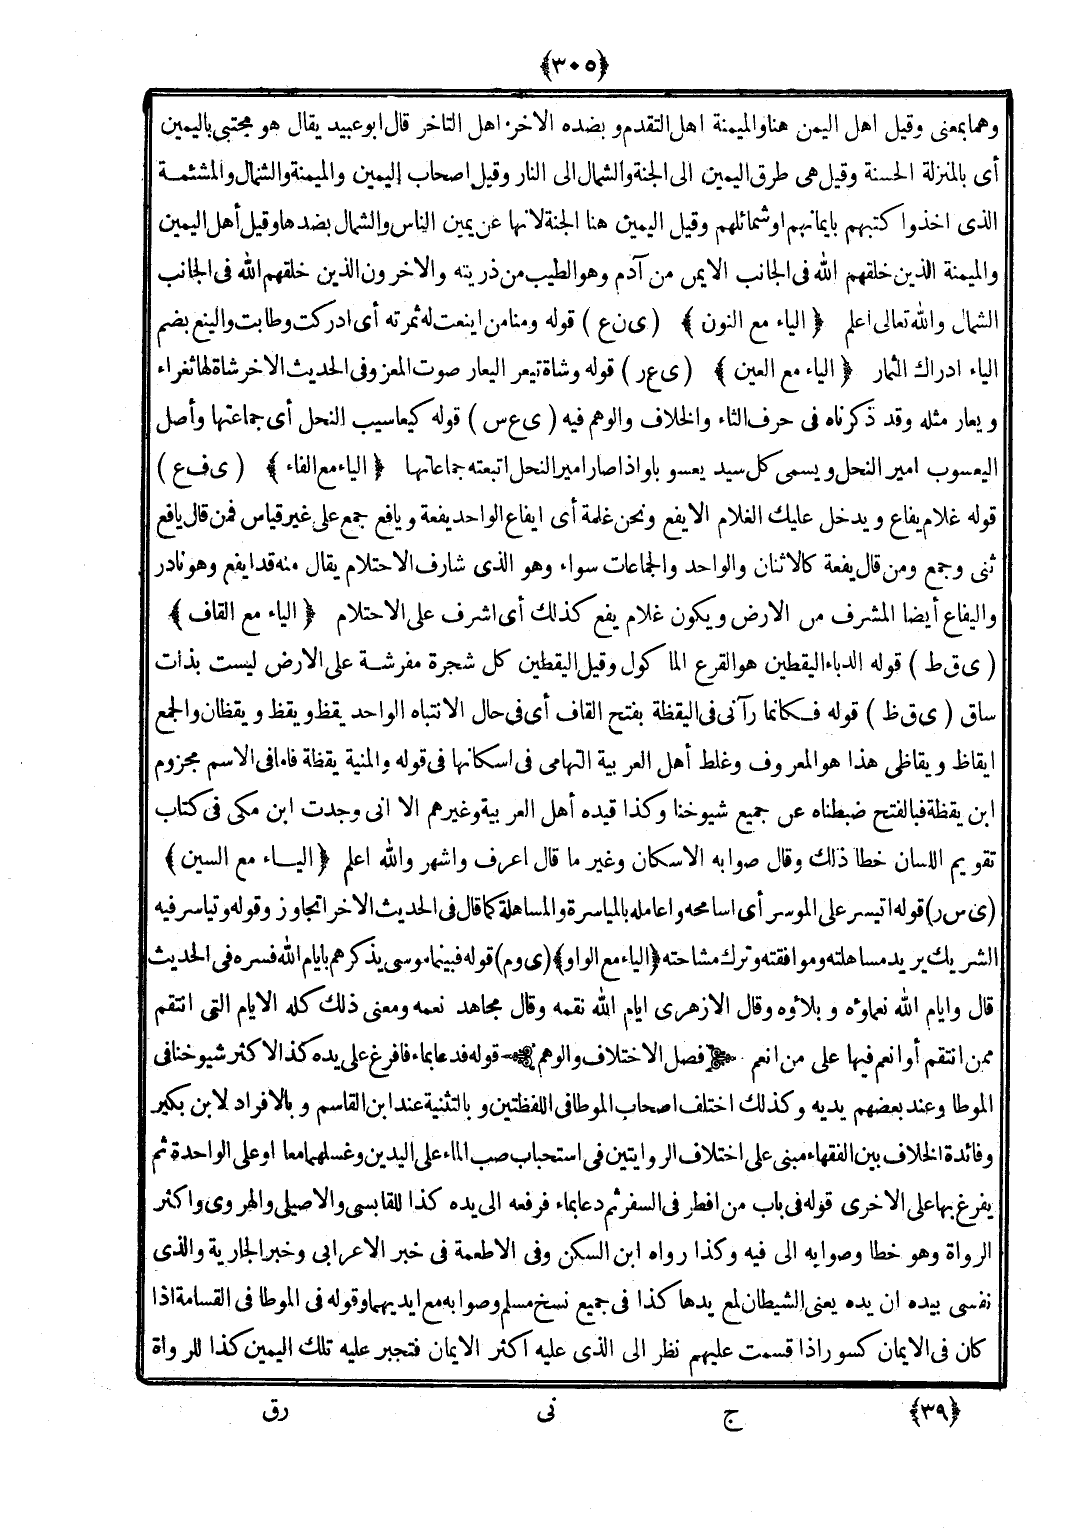 ﴿٣٠٥﴾
وهما بمعنى وقيل اهل اليمن هنا والميمنة اهل التقدم وبضده الاخر اهل التاخر قال ابو عبيد يقال هو مجتبى باليمين
أى بالمنزلة الحسنة وقيل هى طرق اليمين الى الجنة والشمال الى النار وقيل اصحاب اليمين والميمنة والشمال والمشئمة
الذى اخذوا كتبهم بايمانهم او شمائلهم وقيل اليمين هنا الجنة لانها عن يمين الناس والشمال بضدها وقيل أهل اليمين
والميمنة الذين خلقهم الله فى الجانب الايمن من آدم وهو الطيب من ذريته والاخرون الذين خلقهم الله فى الجانب
الشمال والله تعالى اعلم ﴿ الياء مع النون ﴾ (ى ن ع) قوله ومنا من اينعت له ثمرته أى ادركت وطابت والينع بضم
الياء ادراك الثمار ﴿ الياء مع العين ﴾ (ى ع ر) قوله وشاة تيعر اليعار صوت المعز وفى الحديث الاخر شاة لها ثغراء
ويعار مثله وقد ذكرناه فى حرف الثاء والخلاف والوهم فيه (ى ع س) قوله كيعاسيب النحل أى جماعتها وأصل
اليعسوب امير النحل ويسمى كل سيد يعسوبا واذا صار امير النحل اتبعته جماعاتها ﴿ الياء مع الفاء ﴾ (ى ف ع)
قوله غلام يفاع ويدخل عليك الغلام الايفع ونحن غلمة أى ايفاع الواحد يفعة ويافع جمع على غير قياس فمن قال يافع
ثنى وجمع ومن قال يفعة كالاثنان والواحد والجماعات سواء وهو الذى شارف الاحتلام يقال منه قد ايفع وهو نادر
واليفاع أيضا المشرف من الارض ويكون غلام يفع كذلك أى اشرف على الاحتلام ﴿ الياء مع القاف ﴾
(ى ق ط) قوله الدباء اليقطين هو القرع الماكول وقيل اليقطين كل شجرة مفرشة على الارض ليست بذات
ساق (ى ق ظ) قوله فكانما رآنى فى اليقظة بفتح القاف أى فى حال الانتباه الواحد يقظ ويقظ ويقظان والجمع
ايقاظ ويقاظى هذا هو المعروف وغلط أهل العربية التهامى فى اسكانها فى قوله والمنية يقظة فاما فى الاسم مجزوم
ابن يقظة فبالفتح ضبطناه عن جميع شيوخنا وكذا قيده أهل العربية وغيرهم الا انى وجدت ابن مكى فى كتاب
تقويم اللسان خطا ذلك وقال صوابه الاسكان وغير ما قال اعرف واشهر والله اعلم ﴿ اليـاء مع السين ﴾
(ى س ر) قوله اتيسر على الموسر أى اسامحه واعامله بالمياسرة والمساهلة كما قال فى الحديث الاخر اتجاوز وقوله وتياسر فيه
الشريك يريد مساهلته وموافقته وترك مشاحته ﴿الياء مع الواو﴾ (ى وم) قوله فبينما موسى يذكرهم بايام الله فسره فى الحديث
قال وايام الله نعماؤه وبلاؤه وقال الازهرى ايام الله نقمه وقال مجاهد نعمه ومعنى ذلك كله الايام التى انتقم
ممن انتقم أو انعم فيها على من انعم فصل الاختلاف والوهم قوله فدعا بماء فافرغ على يده كذا لاكثر شيوخنا فى
الموطا وعند بعضهم يديه وكذلك اختلف اصحاب الموطا فى اللفظتين وبالتثنية عند ابن القاسم وبالافراد لابن بكير
وفائدة الخلاف بين الفقهاء مبنى على اختلاف الروايتين فى استحباب صب الماء على اليدين وغسلهما معا او على الواحدة ثم
يفرغ بها على الاخرى قوله فى باب من افطر فى السفر ثم دعا بماء فرفعه الى يده كذا للقابسى والاصيلى والهروى واكثر
الرواة وهو خطا وصوابه الى فيه وكذا رواه ابن السكن وفى الاطعمة فى خبر الاعرابى وخبر الجارية والذى
نفسى بيده ان يده يعنى الشيطان لمع يدها كذا فى جميع نسخ مسلم وصوابه مع ايديهما وقوله فى الموطا فى القسامة اذا
كان فى الايمان كسور اذا قسمت عليهم نظر الى الذى عليه اكثر الايمان فتجبر عليه تلك اليمين كذا للرواة
﴿٣٩﴾ ج نى رق